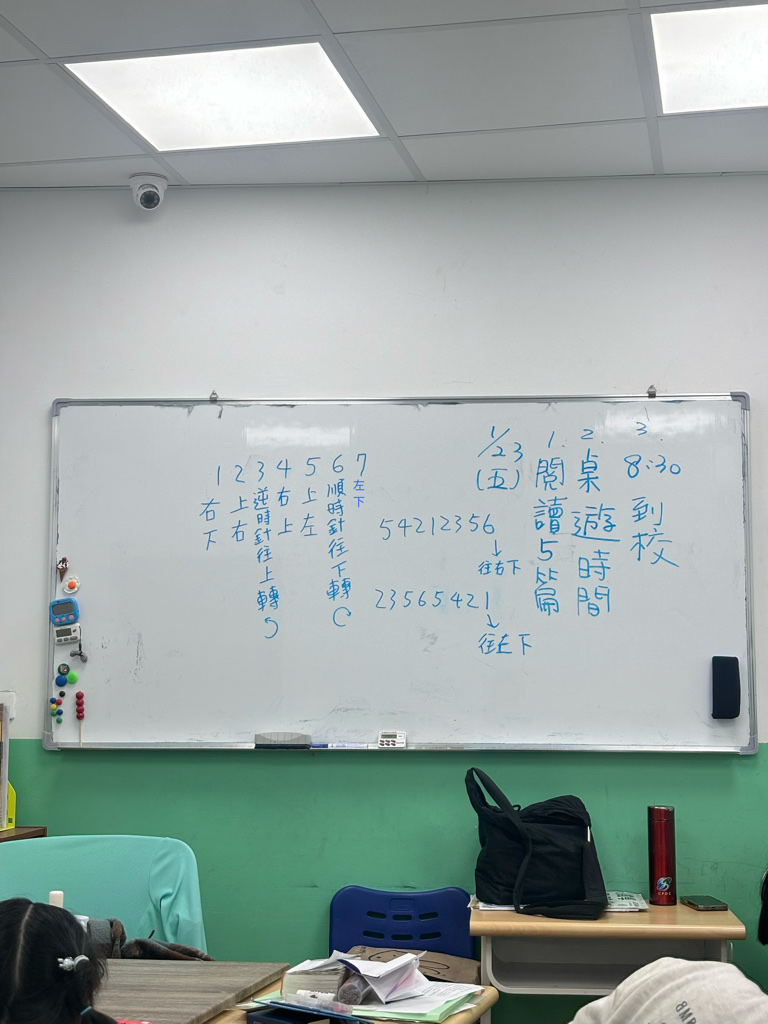 1 右下
2 上右
3 逆時針往上轉
4 右上
5 上左
6 順時針往下轉
7 左下
54212356
↓
往右下
23565421
↓
往左下
1/23
(五)
1. 閱讀5篇
2. 桌遊時間
3. 8:30到校